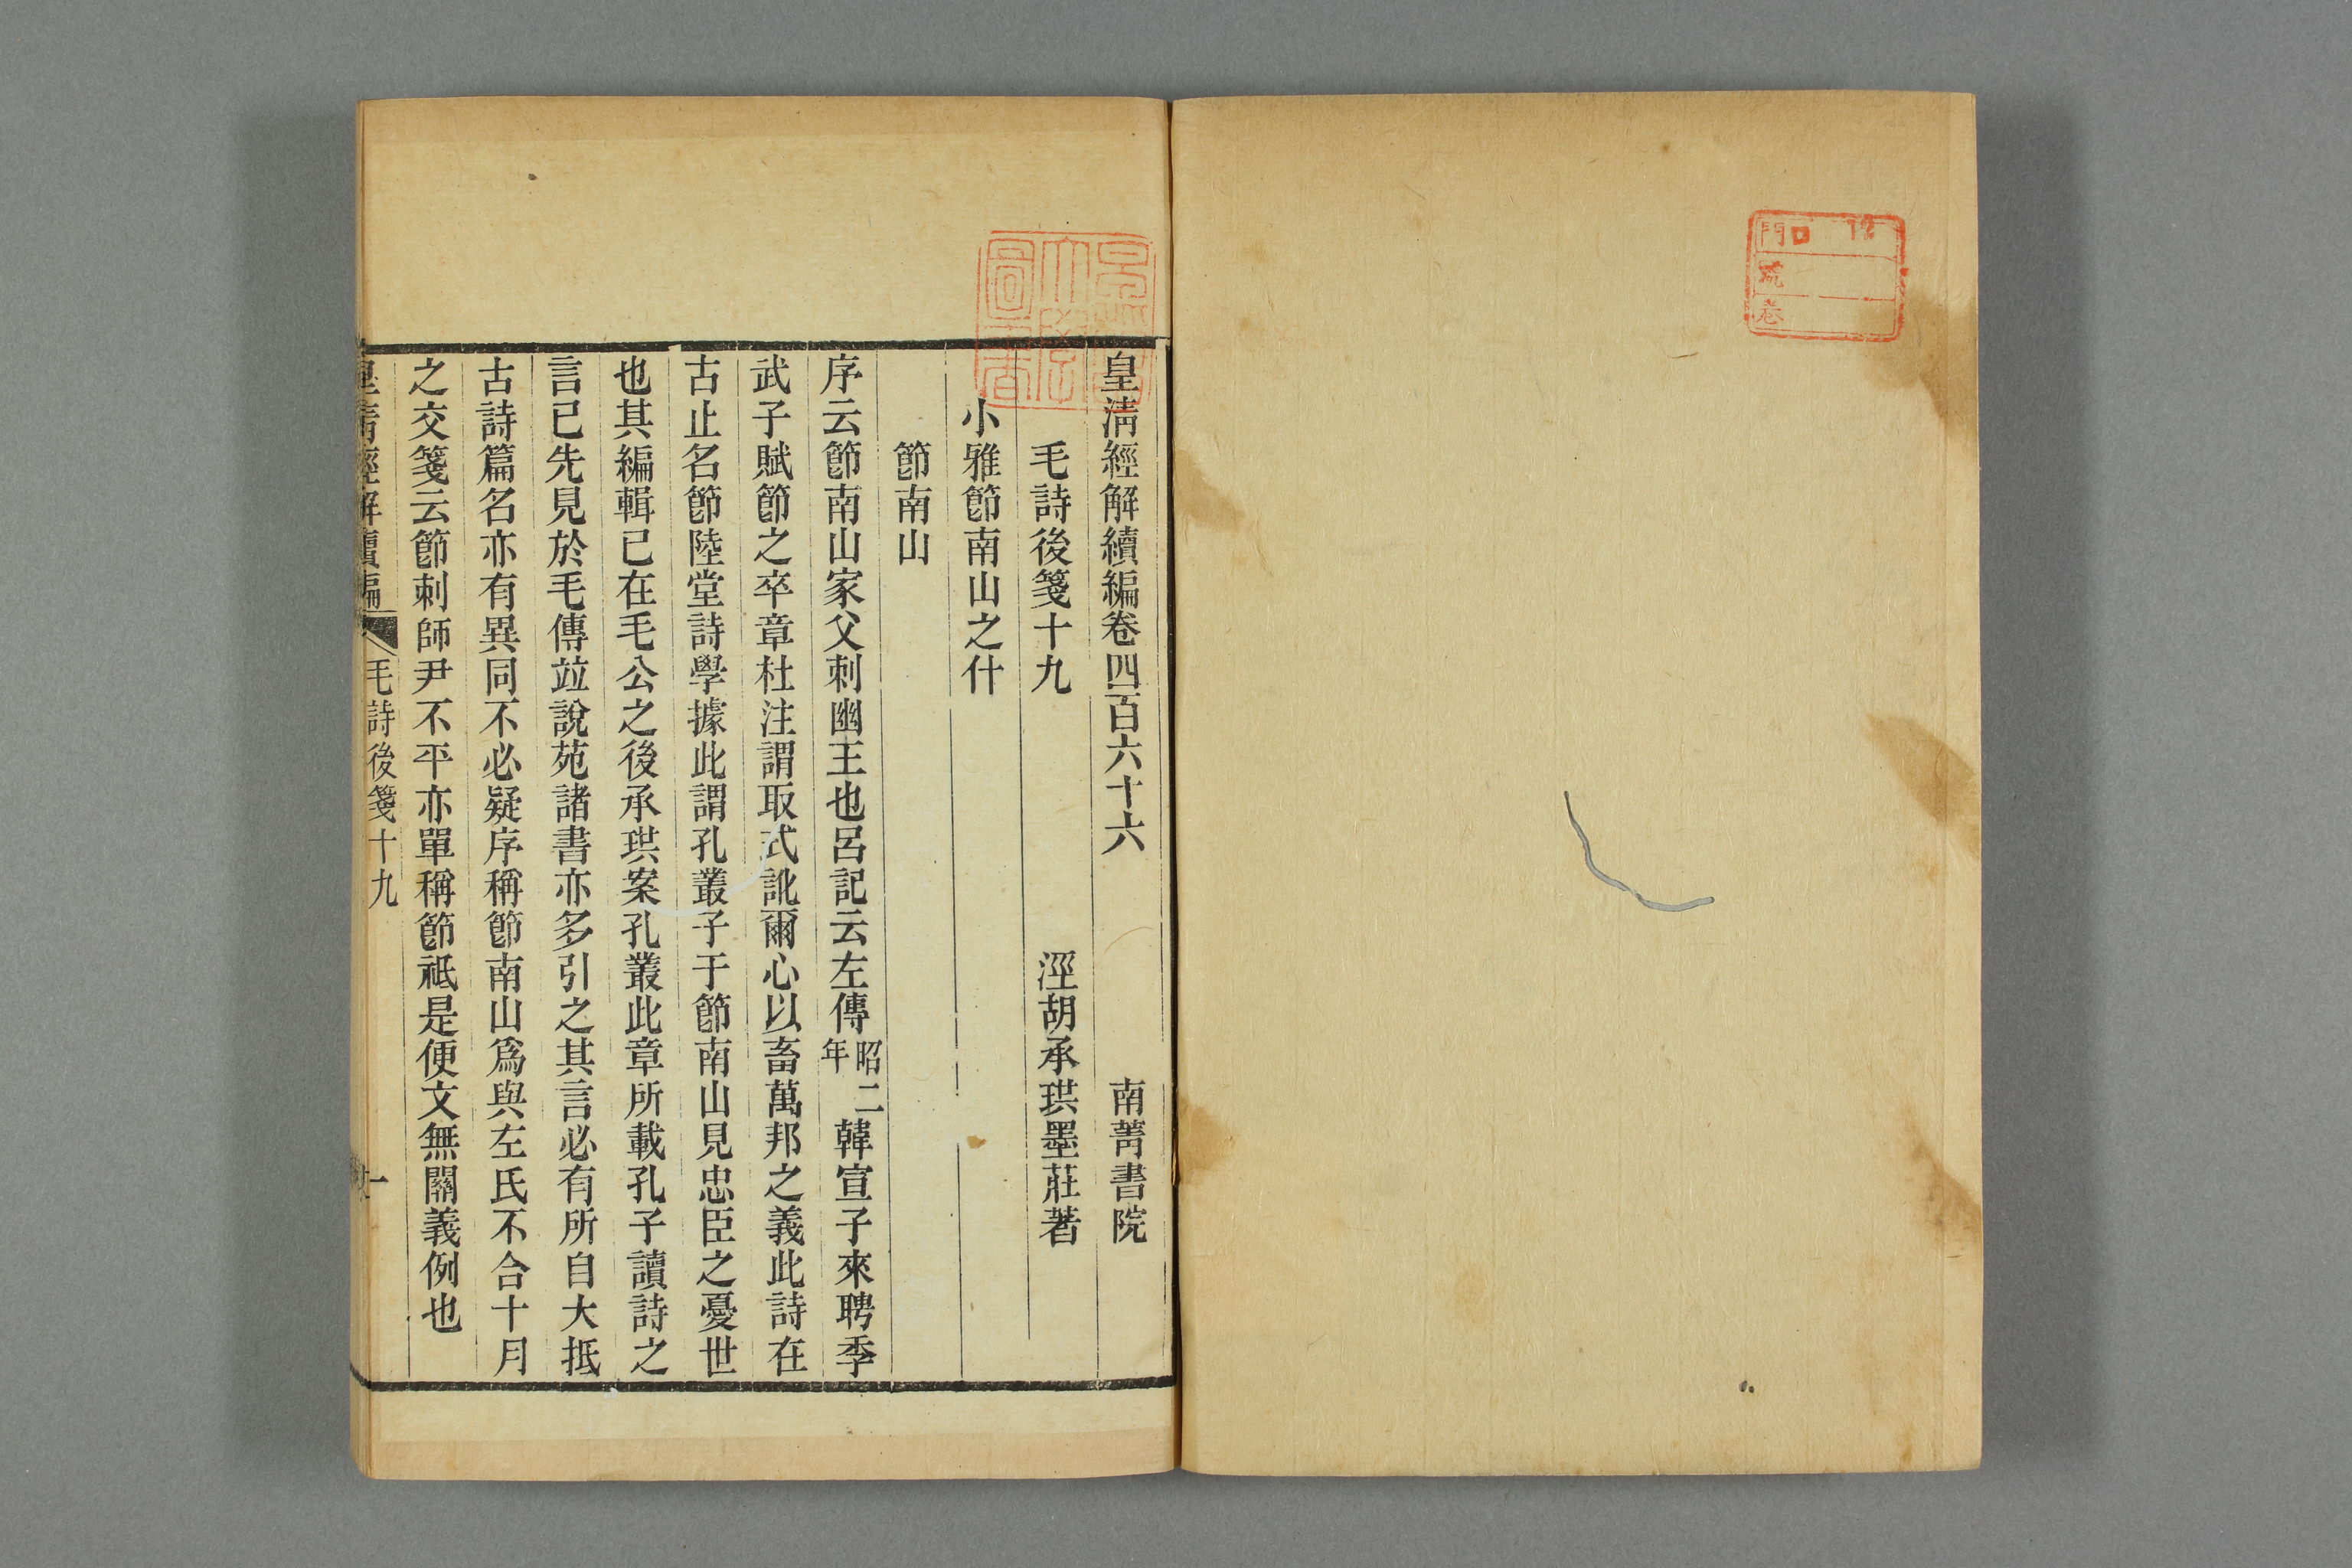 門
號
卷
皇淸經解續編卷四百六十六 南菁書院
毛詩後箋十九 涇胡承珙墨莊著
小雅節南山之什
節南山
序云節南山家父刺幽王也呂記云左傳昭二年韓宣子來聘季
武子賦節之卒章杜注謂取式訛爾心以畜萬邦之義此詩在
古止名節陸堂詩學據此謂孔叢子于節南山見忠臣之憂世
也其編輯已在毛公之後承珙案孔叢此章所載孔子讀詩之
言已先見於毛傳竝說苑諸書亦多引之其言必有所自大抵
古詩篇名亦有異同不必疑序稱節南山爲與左氏不合十月
之交箋云節刺師尹不平亦單稱節祗是便文無關義例也
皇淸經解續編 毛詩後箋十九 一